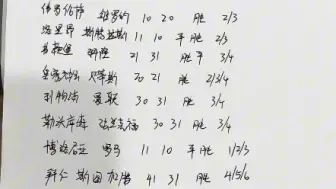 佛罗伦萨 维罗纳 11 0 20 胜 2/3
洛里昂 斯特拉斯 11 10 平胜 2/3
科隆 21 31 胜平 3/4
贝蒂斯 20 21 胜 2/3/4
利物浦 曼联 30 31 胜 3/4
勒沃库森 法兰克福 30 31 胜 3/4
博洛尼亚 罗马 11 10 平胜 1/2/3
拜仁 斯图加特 41 31 胜 4/5/6